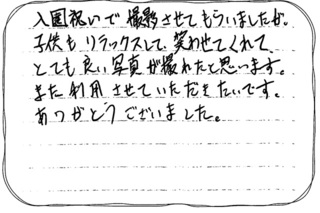 入園祝いで撮影させてもらいましたが。
子供もリラックスして、笑わせてくれて、
とても良い写真が撮れたと思います。
また利用させていただきたいです。
ありがとうございました。